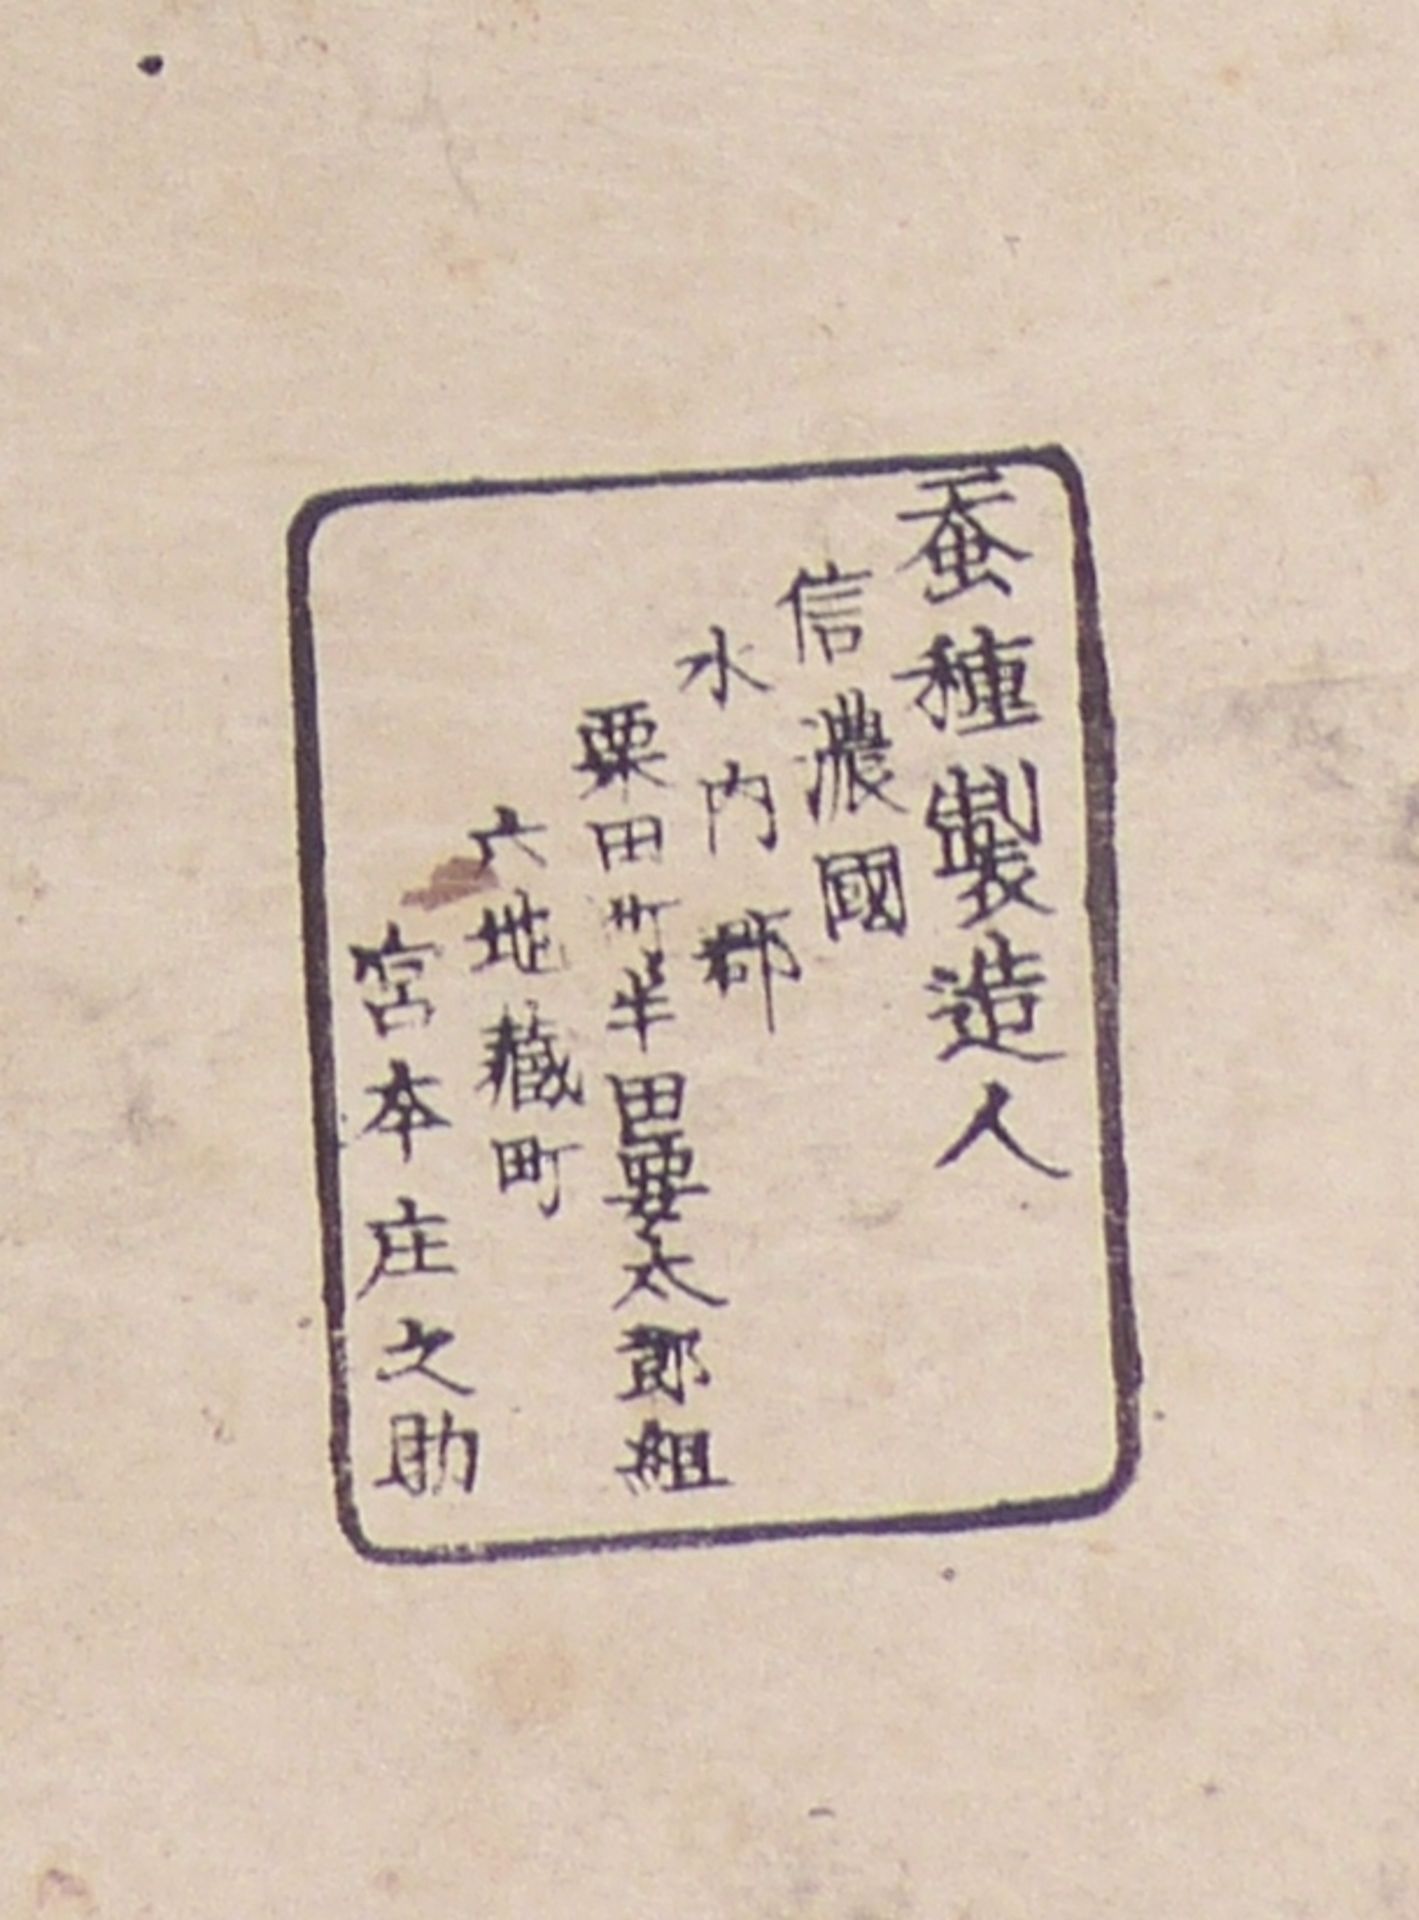 蚕種製造人
信濃國
水内郡
栗田町半田要太郎組
六地蔵町
宮本庄之助